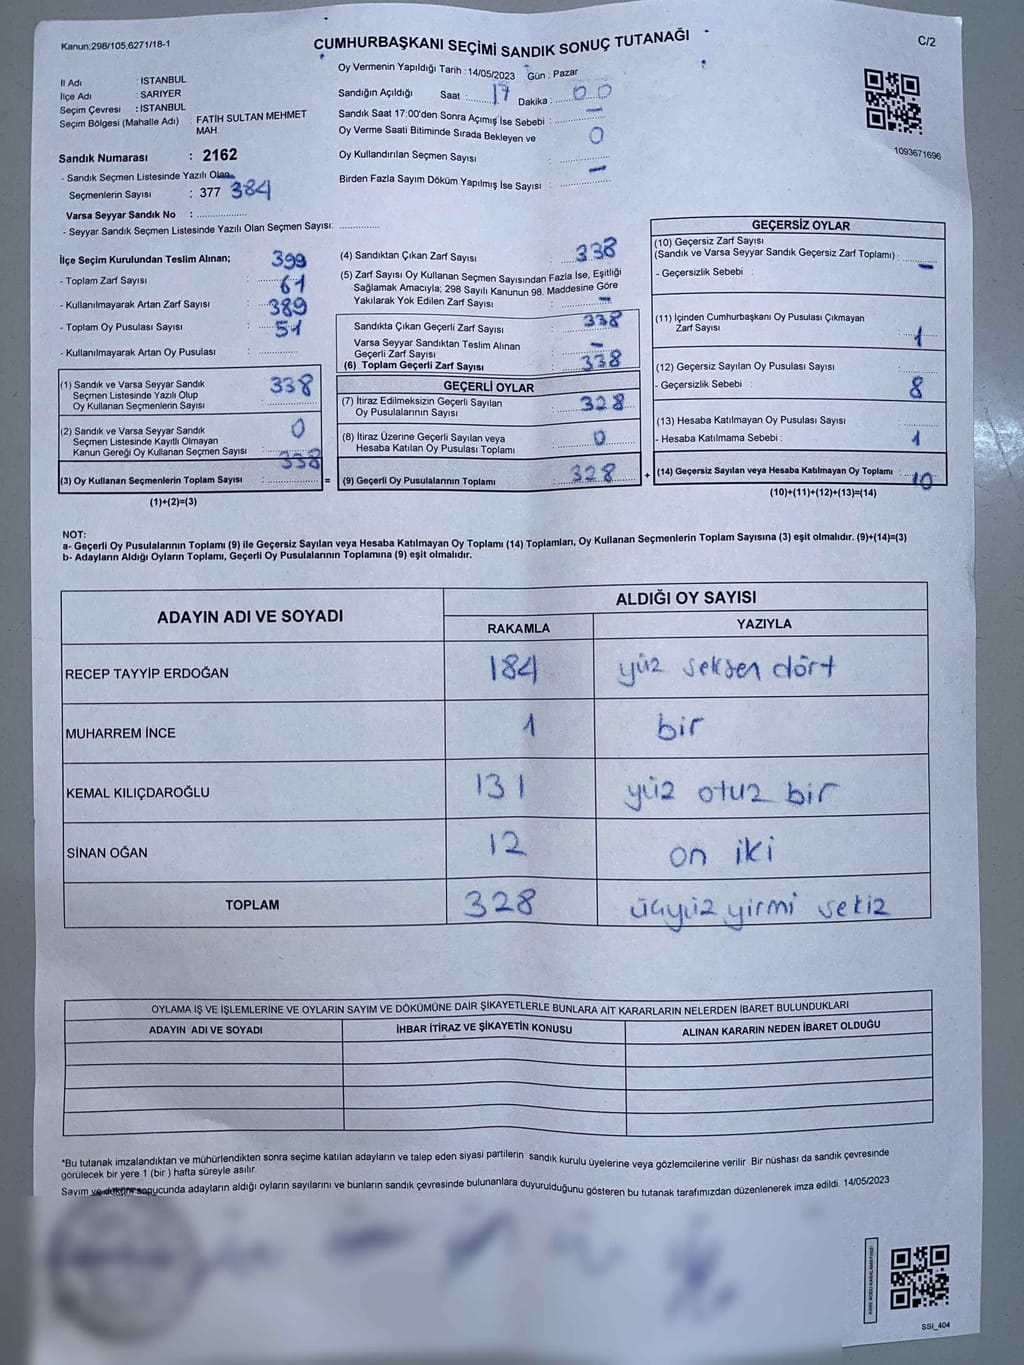 Kanun:298/105,6271/18-1
CUMHURBAŞKANI SEÇİMİ SANDIK SONUÇ TUTANAĞI
C/2
İl Adı : İSTANBUL
İlçe Adı : SARIYER
Seçim Çevresi : İSTANBUL
Seçim Bölgesi (Mahalle Adı) : FATİH SULTAN MEHMET
MAH.
Sandık Numarası : 2162
- Sandık Seçmen Listesinde Yazılı Olan
Seçmenlerin Sayısı : 377 384
Varsa Seyyar Sandık No : ....................
- Seyyar Sandık Seçmen Listesinde Yazılı Olan Seçmen Sayısı: ................
Oy Vermenin Yapıldığı Tarih : 14/05/2023 Gün : Pazar
Sandığın Açıldığı Saat : 17 Dakika : 00
Sandık Saat 17:00'den Sonra Açımış İse Sebebi : -
Oy Verme Saati Bitiminde Sırada Bekleyen ve 0
Oy Kullandırılan Seçmen Sayısı :
Birden Fazla Sayım Döküm Yapılmış İse Sayısı : -
1093671696
İlçe Seçim Kurulundan Teslim Alınan; 399
- Toplam Zarf Sayısı : 61
- Kullanılmayarak Artan Zarf Sayısı : 389
- Toplam Oy Pusulası Sayısı : 51
- Kullanılmayarak Artan Oy Pusulası :
(1) Sandık ve Varsa Seyyar Sandık
Seçmen Listesinde Yazılı Olup
Oy Kullanan Seçmenlerin Sayısı : 338
(2) Sandık ve Varsa Seyyar Sandık
Seçmen Listesinde Kayıtlı Olmayan
Kanun Gereği Oy Kullanan Seçmen Sayısı : 0
(3) Oy Kullanan Seçmenlerin Toplam Sayısı : 338
(1)+(2)=(3)
=
(4) Sandıktan Çıkan Zarf Sayısı : 338
(5) Zarf Sayısı Oy Kullanan Seçmen Sayısından Fazla İse, Eşitliği
Sağlamak Amacıyla; 298 Sayılı Kanunun 98. Maddesine Göre
Yakılarak Yok Edilen Zarf Sayısı : -
Sandıkta Çıkan Geçerli Zarf Sayısı : 338
Varsa Seyyar Sandıktan Teslim Alınan
Geçerli Zarf Sayısı : -
(6) Toplam Geçerli Zarf Sayısı : 338
GEÇERLİ OYLAR
(7) İtiraz Edilmeksizin Geçerli Sayılan
Oy Pusulalarının Sayısı : 328
(8) İtiraz Üzerine Geçerli Sayılan veya
Hesaba Katılan Oy Pusulası Toplamı : 0
(9) Geçerli Oy Pusulalarının Toplamı : 328
+
GEÇERSİZ OYLAR
(10) Geçersiz Zarf Sayısı
(Sandık ve Varsa Seyyar Sandık Geçersiz Zarf Toplamı) : -
- Geçersizlik Sebebi :
(11) İçinden Cumhurbaşkanı Oy Pusulası Çıkmayan
Zarf Sayısı : 1
(12) Geçersiz Sayılan Oy Pusulası Sayısı :
- Geçersizlik Sebebi : 8
(13) Hesaba Katılmayan Oy Pusulası Sayısı :
- Hesaba Katılmama Sebebi : 1
(14) Geçersiz Sayılan veya Hesaba Katılmayan Oy Toplamı : 10
(10)+(11)+(12)+(13)=(14)
NOT:
a- Geçerli Oy Pusulalarının Toplamı (9) ile Geçersiz Sayılan veya Hesaba Katılmayan Oy Toplamı (14) Toplamları, Oy Kullanan Seçmenlerin Toplam Sayısına (3) eşit olmalıdır. (9)+(14)=(3)
b- Adayların Aldığı Oyların Toplamı, Geçerli Oy Pusulalarının Toplamına (9) eşit olmalıdır.
ADAYIN ADI VE SOYADI
ALDIĞI OY SAYISI
RAKAMLA YAZIYLA
RECEP TAYYİP ERDOĞAN 184 yüz seksen dört
MUHARREM İNCE 1 bir
KEMAL KILIÇDAROĞLU 131 yüz otuz bir
SİNAN OĞAN 12 on iki
TOPLAM 328 üçyüz yirmi sekiz
OYLAMA İŞ VE İŞLEMLERİNE VE OYLARIN SAYIM VE DÖKÜMÜNE DAİR ŞİKAYETLERLE BUNLARA AİT KARARLARIN NELERDEN İBARET BULUNDUKLARI
ADAYIN ADI VE SOYADI İHBAR İTİRAZ VE ŞİKAYETİN KONUSU ALINAN KARARIN NEDEN İBARET OLDUĞU
*Bu tutanak imzalandıktan ve mühürlendikten sonra seçime katılan adayların ve talep eden siyasi partilerin sandık kurulu üyelerine veya gözlemcilerine verilir. Bir nüshası da sandık çevresinde
görülecek bir yere 1 (bir ) hafta süreyle asılır.
Sayım ve döküm sonucunda adayların aldığı oyların sayılarını ve bunların sandık çevresinde bulunanlara duyurulduğunu gösteren bu tutanak tarafımızdan düzenlenerek imza edildi. 14/05/2023
SSİ_404